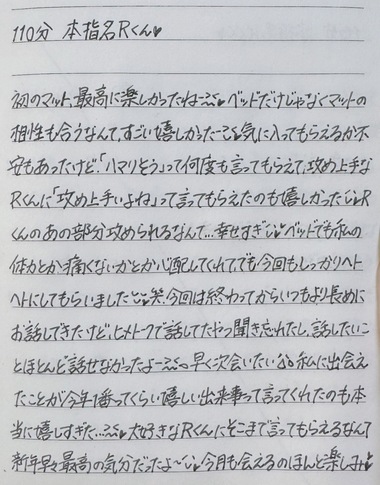 110分 本指名Rくん♥
初のマット、最高に楽しかったねー♥ベッドだけじゃなくマットの
相性も合うなんて、すごい嬉しかったー気に入ってもらえるか不
安もあったけど、「ハマりそう」って何度も言ってもらえて、攻め上手な
Rくんに「攻め上手いよね」って言ってもらえたのも嬉しかった♥R
くんのあの部分攻められるなんて...幸せすぎ♥ベッドでも私の
体力とか痛くないかとか心配してくれて、でも今回もしっかりヘト
ヘトにしてもらいました笑、今回は終わってからいつもより長めに
お話しできたけど、ヒメトークで話してたやつ聞き忘れたし、話したいこ
とほとんど話せなかったよー。早く次会いたい私に出会え
たことが今年1番ってくらい嬉しい出来事って言ってくれたのも本
当に嬉しすぎた...♥大好きなRくんにそこまで言ってもらえるなんて
新年早々最高の気分だったよ〜♥今月も会えるのほんと楽しみ♥